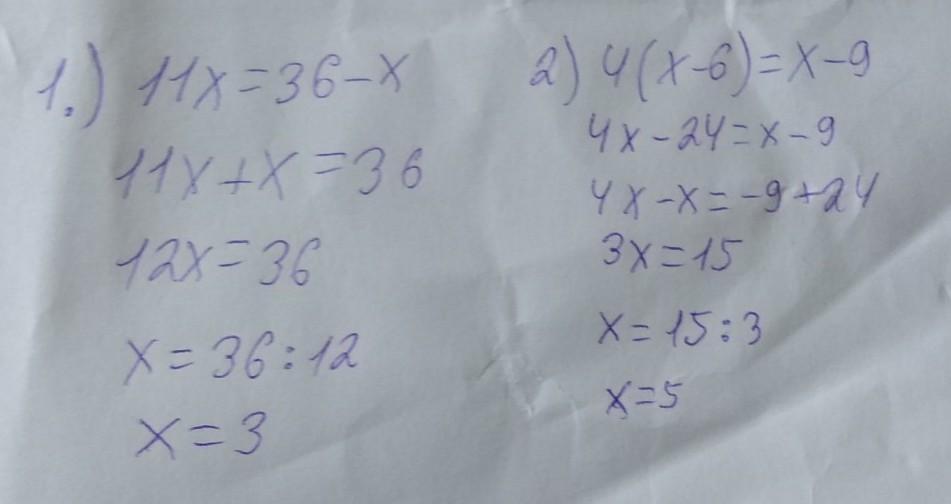 1.) 11x=36-x
11x+x=36
12x=36
x=36:12
x=3
2) 4(x-6)=x-9
4x-24=x-9
4x-x=-9+24
3x=15
x=15:3
x=5